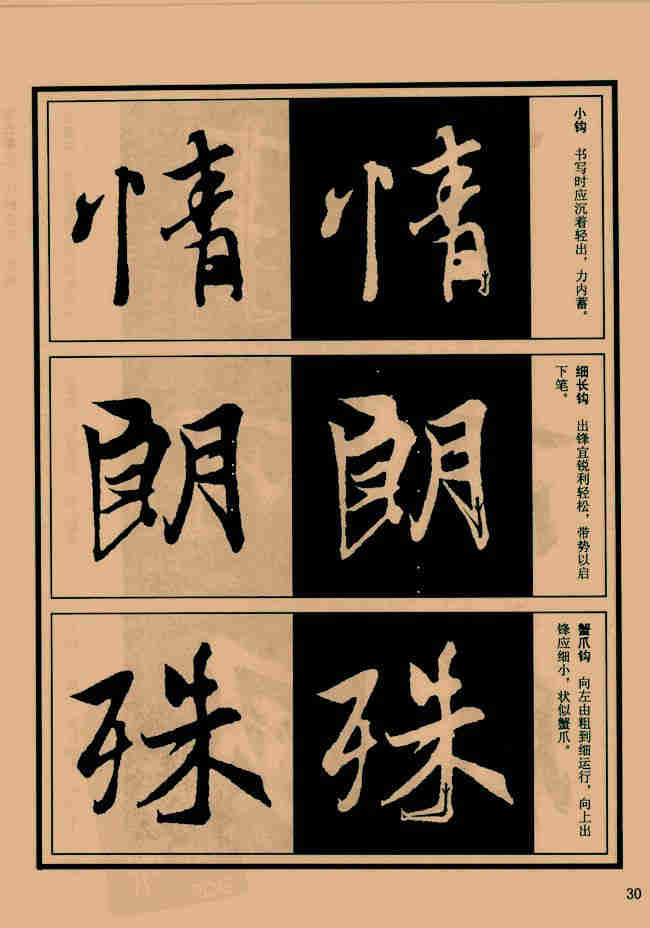 小钩　书写时应沉着轻出，力内蓄。
情
情
细长钩　出锋宜锐利轻松，带势以启
下笔。
朗
朗
蟹爪钩　向左由粗到细运行，向上出
锋应细小，状似蟹爪。
殊
殊
30